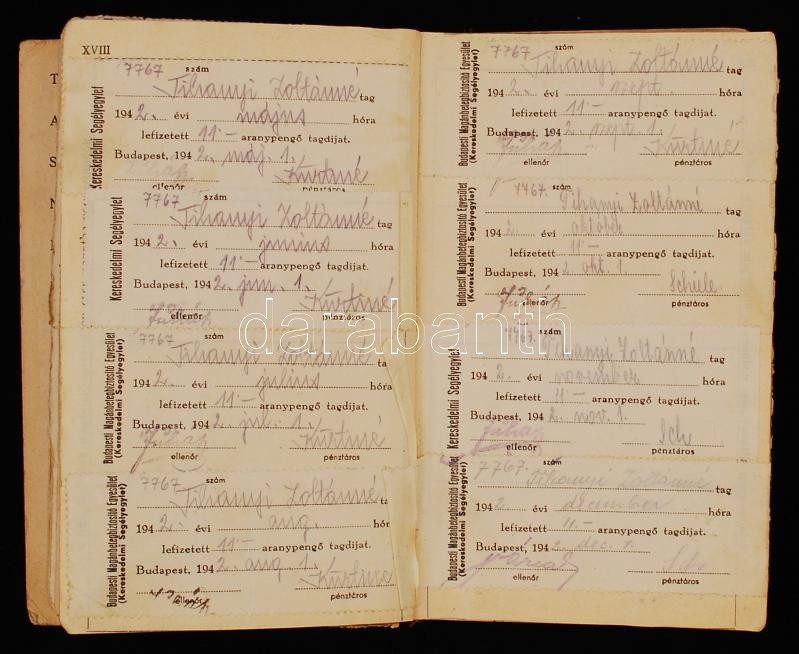 XVIII
T
A
S
7767 szám
Tihanyi Zoltánné tag
Kereskedelmi Segélyegylet
1942. évi május hóra
lefizetett 11·— aranypengő tagdijat.
Budapest, 1942. máj. 1.
Juhász Kürtné
ellenőr pénztáros
7767 szám
Tihanyi Zoltánné tag
Kereskedelmi Segélyegylet
1942. évi junius hóra
lefizetett 11·— aranypengő tagdijat.
Budapest, 1942. jun. 1.
Juhász Kürtné
ellenőr pénztáros
7767 szám
Tihanyi Zoltánné tag
Budapesti Magánbetegbiztosító Egyesület
(Kereskedelmi Segélyegylet)
1942. évi julius hóra
lefizetett 11·— aranypengő tagdijat.
Budapest, 1942. jul. 1.
Juhász Kürtné
ellenőr pénztáros
7767 szám
Tihanyi Zoltánné ta
Budapesti Magánbetegbiztosító Egyesület
(Kereskedelmi Segélyegylet)
1942. évi aug. hór
lefizetett 11·— aranypengő tagdijat.
Budapest, 1942. aug. 1.
Kürtné
ellenőr pénztáros
7767 szám
Tihanyi Zoltánné tag
Budapesti Magánbetegbiztosító Egyesület
(Kereskedelmi Segélyegylet)
1942. évi szept. hóra
lefizetett 11·— aranypengő tagdijat.
Budapest, 1942. szept. 1.
Juhász Kürtné
ellenőr pénztáros
7767. szám
Tihanyi Zoltánné tag
Budapesti Magánbetegbiztosító Egyesület
(Kereskedelmi Segélyegylet)
1942. évi október hóra
lefizetett 11·— aranypengő tagdijat.
Budapest, 1942. okt. 1.
Juhász Schiele
ellenőr pénztáros
7767. szám
Tihanyi Zoltánné tag
Kereskedelmi Segélyegylet
1942. évi november hóra
lefizetett 11·— aranypengő tagdijat.
Budapest, 1942. nov. 1.
Juhász Sch
ellenőr pénztáros
7767. szám
Tihanyi Zoltánné tag
Budapesti Magánbetegbiztosító Egyesület
(Kereskedelmi Segélyegylet)
1942. évi december hóra
lefizetett 11·— aranypengő tagdijat.
Budapest, 1942. dec. 1.
ellenőr pénztáros
darabanth